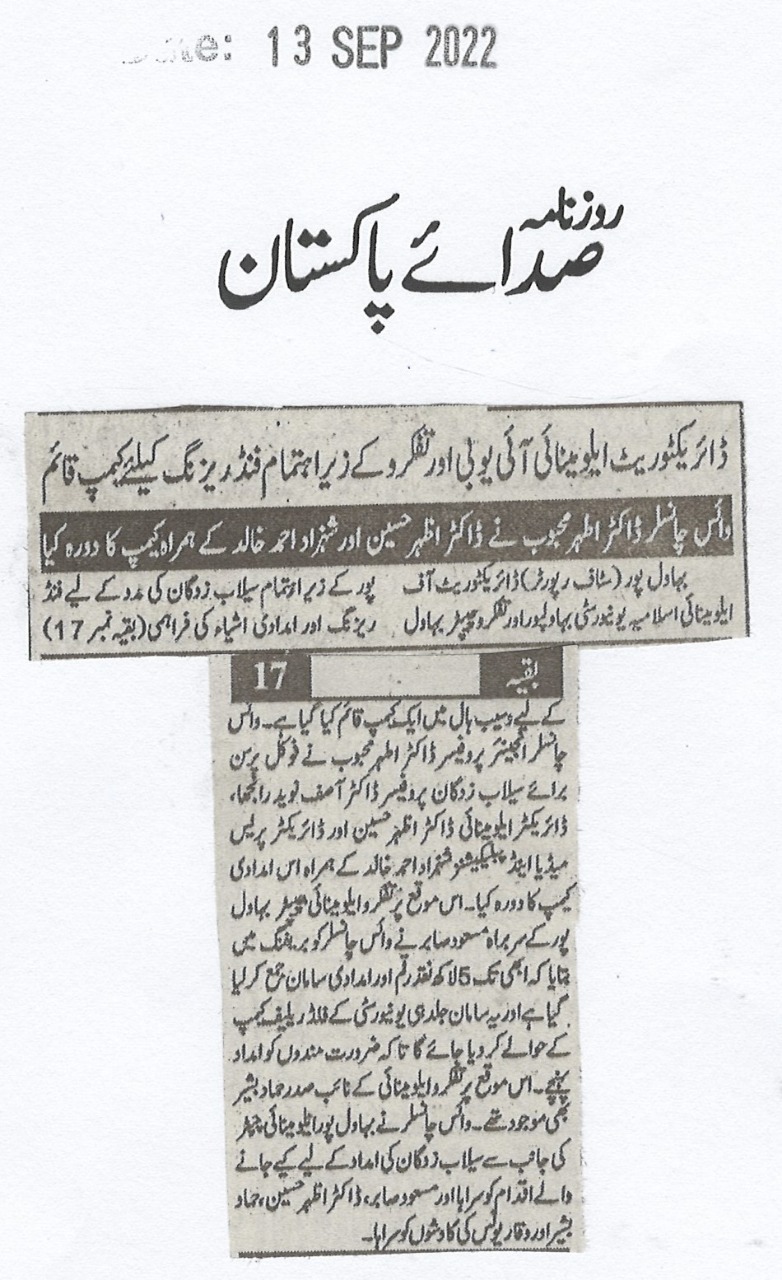 Date: 13 SEP 2022
روزنامہ
صدائے پاکستان
ڈائریکٹوریٹ ایلومینائی آئی یو بی اور تفکرو کے زیر اہتمام فنڈ ریزنگ کیلئے کیمپ قائم
وائس چانسلر ڈاکٹر اطہر محبوب نے ڈاکٹر اظہر حسین اور شہزاد احمد خالد کے ہمراہ کیمپ کا دورہ کیا
بہاول پور (سٹاف رپورٹر) ڈائریکٹوریٹ آف
ایلومینائی اسلامیہ یونیورسٹی بہاولپور اور تفکرو چیپٹر بہاول
پور کے زیر اہتمام سیلاب زدگان کی مدد کے لیے فنڈ
ریزنگ اور امدادی اشیاء کی فراہمی (بقیہ نمبر 17)
بقیہ 17
کے لیے وسیب ہال میں ایک کیمپ قائم کیا گیا ہے۔ وائس
چانسلر انجینئر پروفیسر ڈاکٹر اطہر محبوب نے فوکل پرسن
برائے سیلاب زدگان پروفیسر ڈاکٹر آصف نوید رانجھا،
ڈائریکٹر ایلومینائی ڈاکٹر اظہر حسین اور ڈائریکٹر پریس
میڈیا اینڈ پبلیکیشنز شہزاد احمد خالد کے ہمراہ اس امدادی
کیمپ کا دورہ کیا۔ اس موقع پر تفکرو ایلومینائی چیپٹر بہاول
پور کے سربراہ مسعود صابر نے وائس چانسلر کو بریفنگ میں
بتایا کہ ابھی تک 5لاکھ نقد رقم اور امدادی سامان جمع کر لیا
گیا ہے اور یہ سامان جلد ہی یونیورسٹی کے فلڈ ریلیف کیمپ
کے حوالے کر دیا جائے گا تاکہ ضرورت مندوں کو امداد
پہنچے۔ اس موقع پر تفکرو ایلومینائی کے نائب صدر حماد بشیر
بھی موجود تھے۔ وائس چانسلر نے بہاول پور ایلومینائی چیپٹر
کی جانب سے سیلاب زدگان کی امداد کے لیے کیے جانے
والے اقدام کو سراہا اور مسعود صابر، ڈاکٹر اظہر حسین، حماد
بشیر اور وقار یونس کی کاوشوں کو سراہا۔